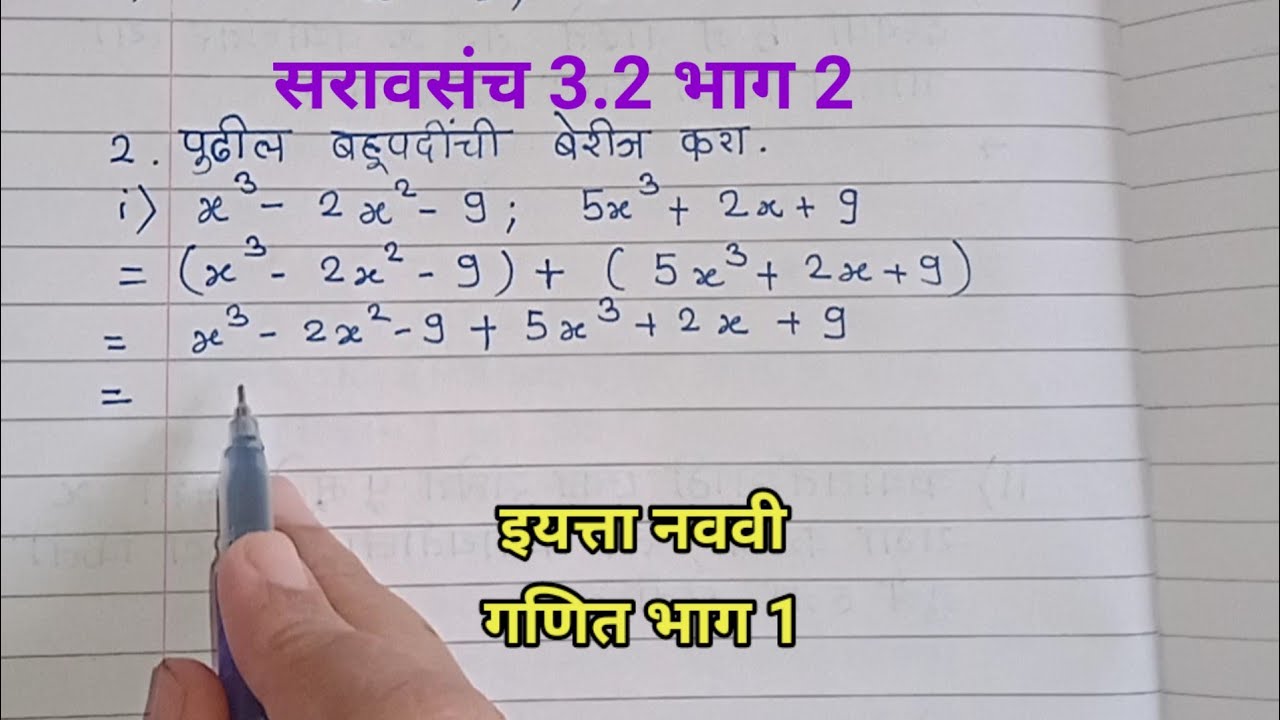 सरावसंच 3.2 भाग 2
2. पुढील बहूपदींची बेरीज करा.
i) x³ - 2x² - 9; 5x³ + 2x + 9
= (x³ - 2x² - 9) + (5x³ + 2x + 9)
= x³ - 2x² - 9 + 5x³ + 2x + 9
=
इयत्ता नववी
गणित भाग 1